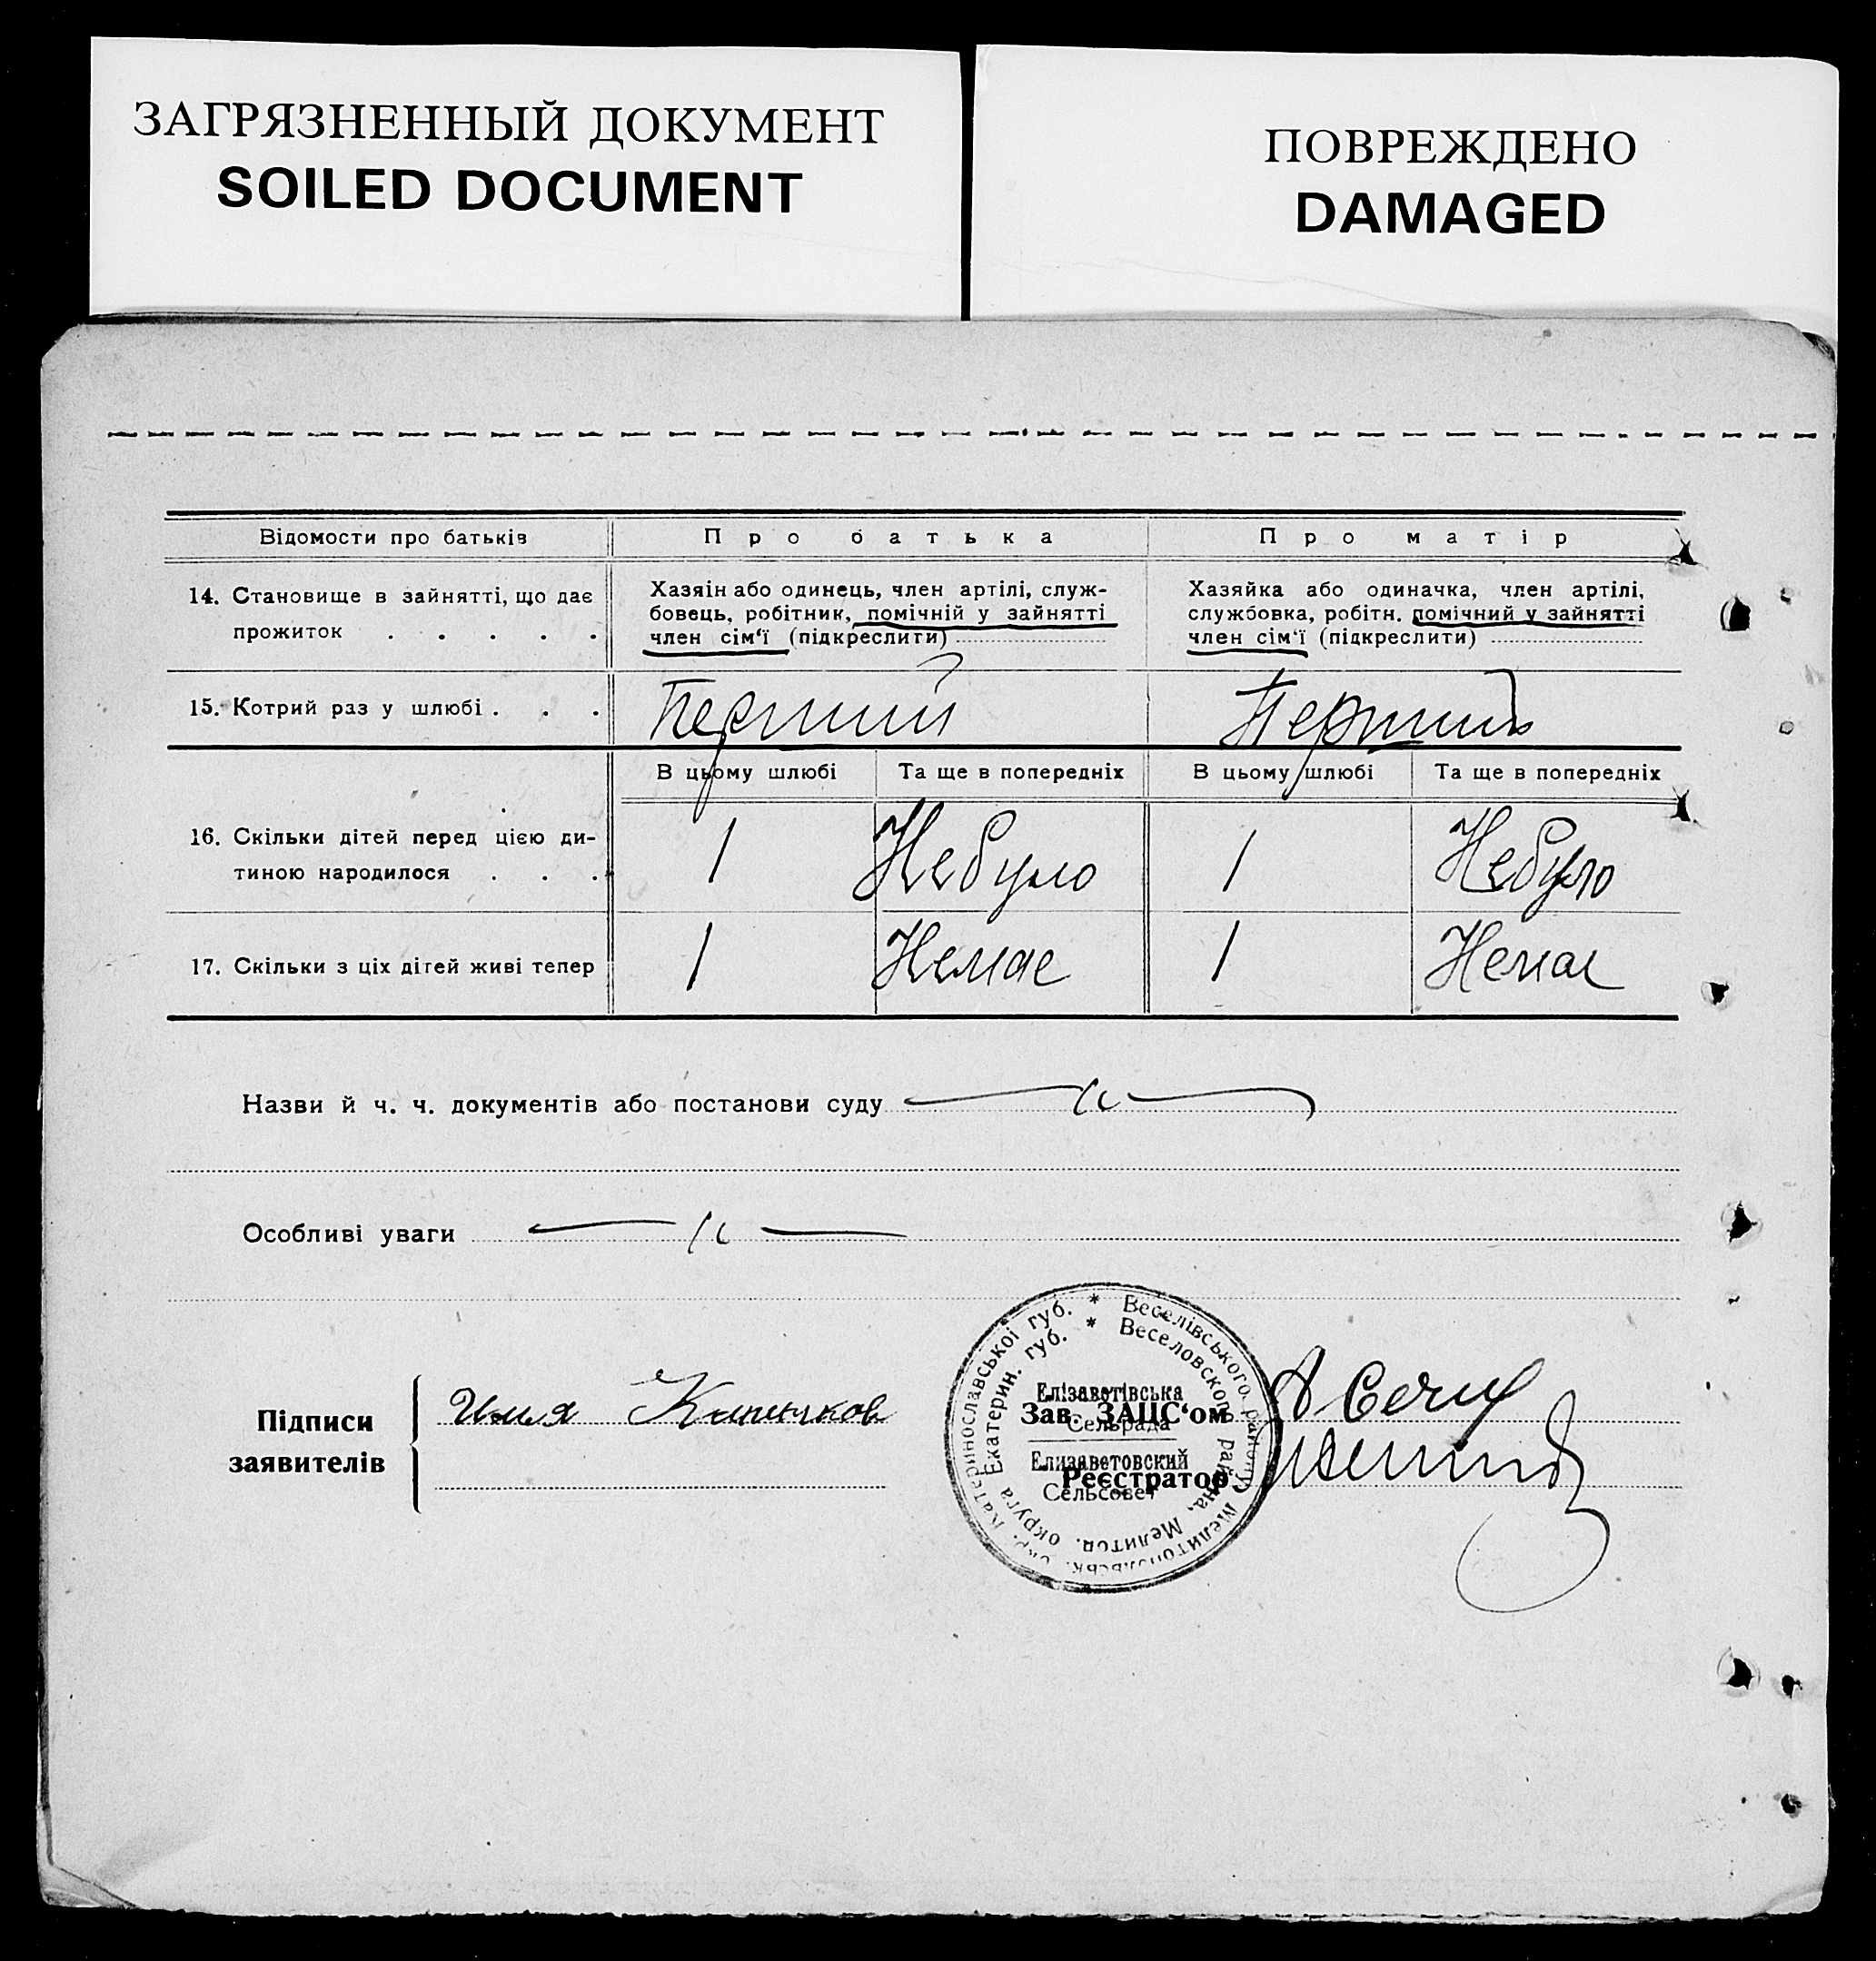 ЗАГРЯЗНЕННЫЙ ДОКУМЕНТ
SOILED DOCUMENT
ПОВРЕЖДЕНО
DAMAGED
Відомости про батьків
Про батька
Про матір
14. Становище в зайнятті, що дає
прожиток . . . . .
Хазяін або одинець, член артілі, служ-
бовець, робітник, помічній у зайнятті
член сім'ї (підкреслити)
Хазяйка або одиначка, член артілі,
службовка, робітн. помічний у зайнятті
член сім'ї (підкреслити)
15. Котрий раз у шлюбі . . .
Перший
Перший
В цьому шлюбі
Та ще в попередніх
В цьому шлюбі
Та ще в попередніх
16. Скільки дітей перед цією ди-
тиною народилося . . .
1
Небуло
1
Небуло
17. Скільки з ціх дітей живі тепер
1
Немає
1
Немає
Назви й ч. ч. документів або постанови суду
Особливі уваги
Підписи
заявителів
Илия
Зав. ЗАЦС'ом
Реєстратор
Веселівського району Мелитопольськ. окр. Катеринославської губ. *
Веселовского района, Мелитоп. округа Екатерин. губ. *
Елізаветівська
Сельрада
Елизаветовский
Сельсовет